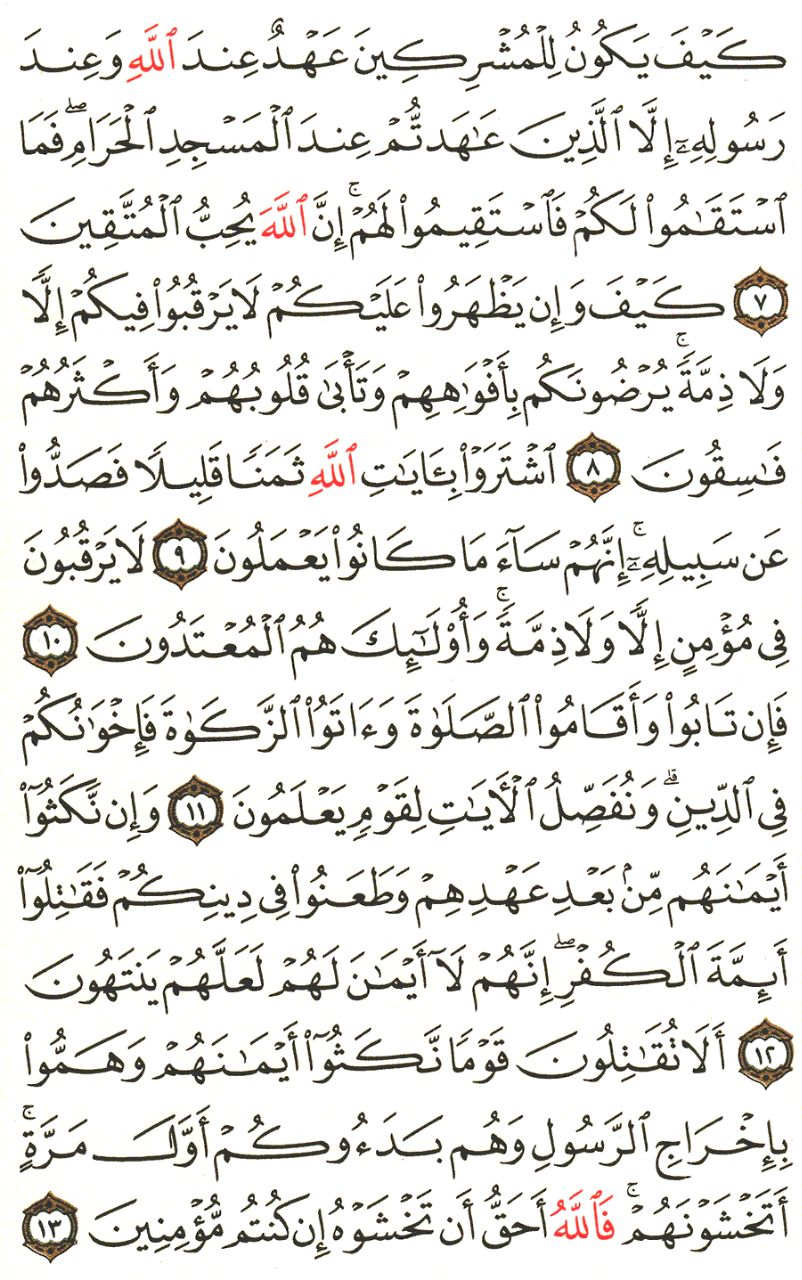 كَيْفَ يَكُونُ لِلْمُشْرِكِينَ عَهْدٌ عِندَ ٱللَّهِ وَعِندَ
رَسُولِهِۦٓ إِلَّا ٱلَّذِينَ عَٰهَدتُّمْ عِندَ ٱلْمَسْجِدِ ٱلْحَرَامِ ۖ فَمَا
ٱسْتَقَٰمُوا۟ لَكُمْ فَٱسْتَقِيمُوا۟ لَهُمْ ۚ إِنَّ ٱللَّهَ يُحِبُّ ٱلْمُتَّقِينَ
٧ كَيْفَ وَإِن يَظْهَرُوا۟ عَلَيْكُمْ لَا يَرْقُبُوا۟ فِيكُمْ إِلًّا
وَلَا ذِمَّةً ۚ يُرْضُونَكُم بِأَفْوَٰهِهِمْ وَتَأْبَىٰ قُلُوبُهُمْ وَأَكْثَرُهُمْ
فَٰسِقُونَ ٨ ٱشْتَرَوْا۟ بِـَٔايَٰتِ ٱللَّهِ ثَمَنًا قَلِيلًا فَصَدُّوا۟
عَن سَبِيلِهِۦٓ ۚ إِنَّهُمْ سَآءَ مَا كَانُوا۟ يَعْمَلُونَ ٩ لَا يَرْقُبُونَ
فِى مُؤْمِنٍ إِلًّا وَلَا ذِمَّةً ۚ وَأُو۟لَٰٓئِكَ هُمُ ٱلْمُعْتَدُونَ ١٠
فَإِن تَابُوا۟ وَأَقَامُوا۟ ٱلصَّلَوٰةَ وَءَاتَوُا۟ ٱلزَّكَوٰةَ فَإِخْوَٰنُكُمْ
فِى ٱلدِّينِ ۗ وَنُفَصِّلُ ٱلْـَٔايَٰتِ لِقَوْمٍ يَعْلَمُونَ ١١ وَإِن نَّكَثُوٓا۟
أَيْمَٰنَهُم مِّنۢ بَعْدِ عَهْدِهِمْ وَطَعَنُوا۟ فِى دِينِكُمْ فَقَٰتِلُوٓا۟
أَئِمَّةَ ٱلْكُفْرِ ۖ إِنَّهُمْ لَآ أَيْمَٰنَ لَهُمْ لَعَلَّهُمْ يَنتَهُونَ
١٢ أَلَا تُقَٰتِلُونَ قَوْمًا نَّكَثُوٓا۟ أَيْمَٰنَهُمْ وَهَمُّوا۟
بِإِخْرَاجِ ٱلرَّسُولِ وَهُم بَدَءُوكُمْ أَوَّلَ مَرَّةٍ ۚ
أَتَخْشَوْنَهُمْ ۚ فَٱللَّهُ أَحَقُّ أَن تَخْشَوْهُ إِن كُنتُم مُّؤْمِنِينَ ١٣